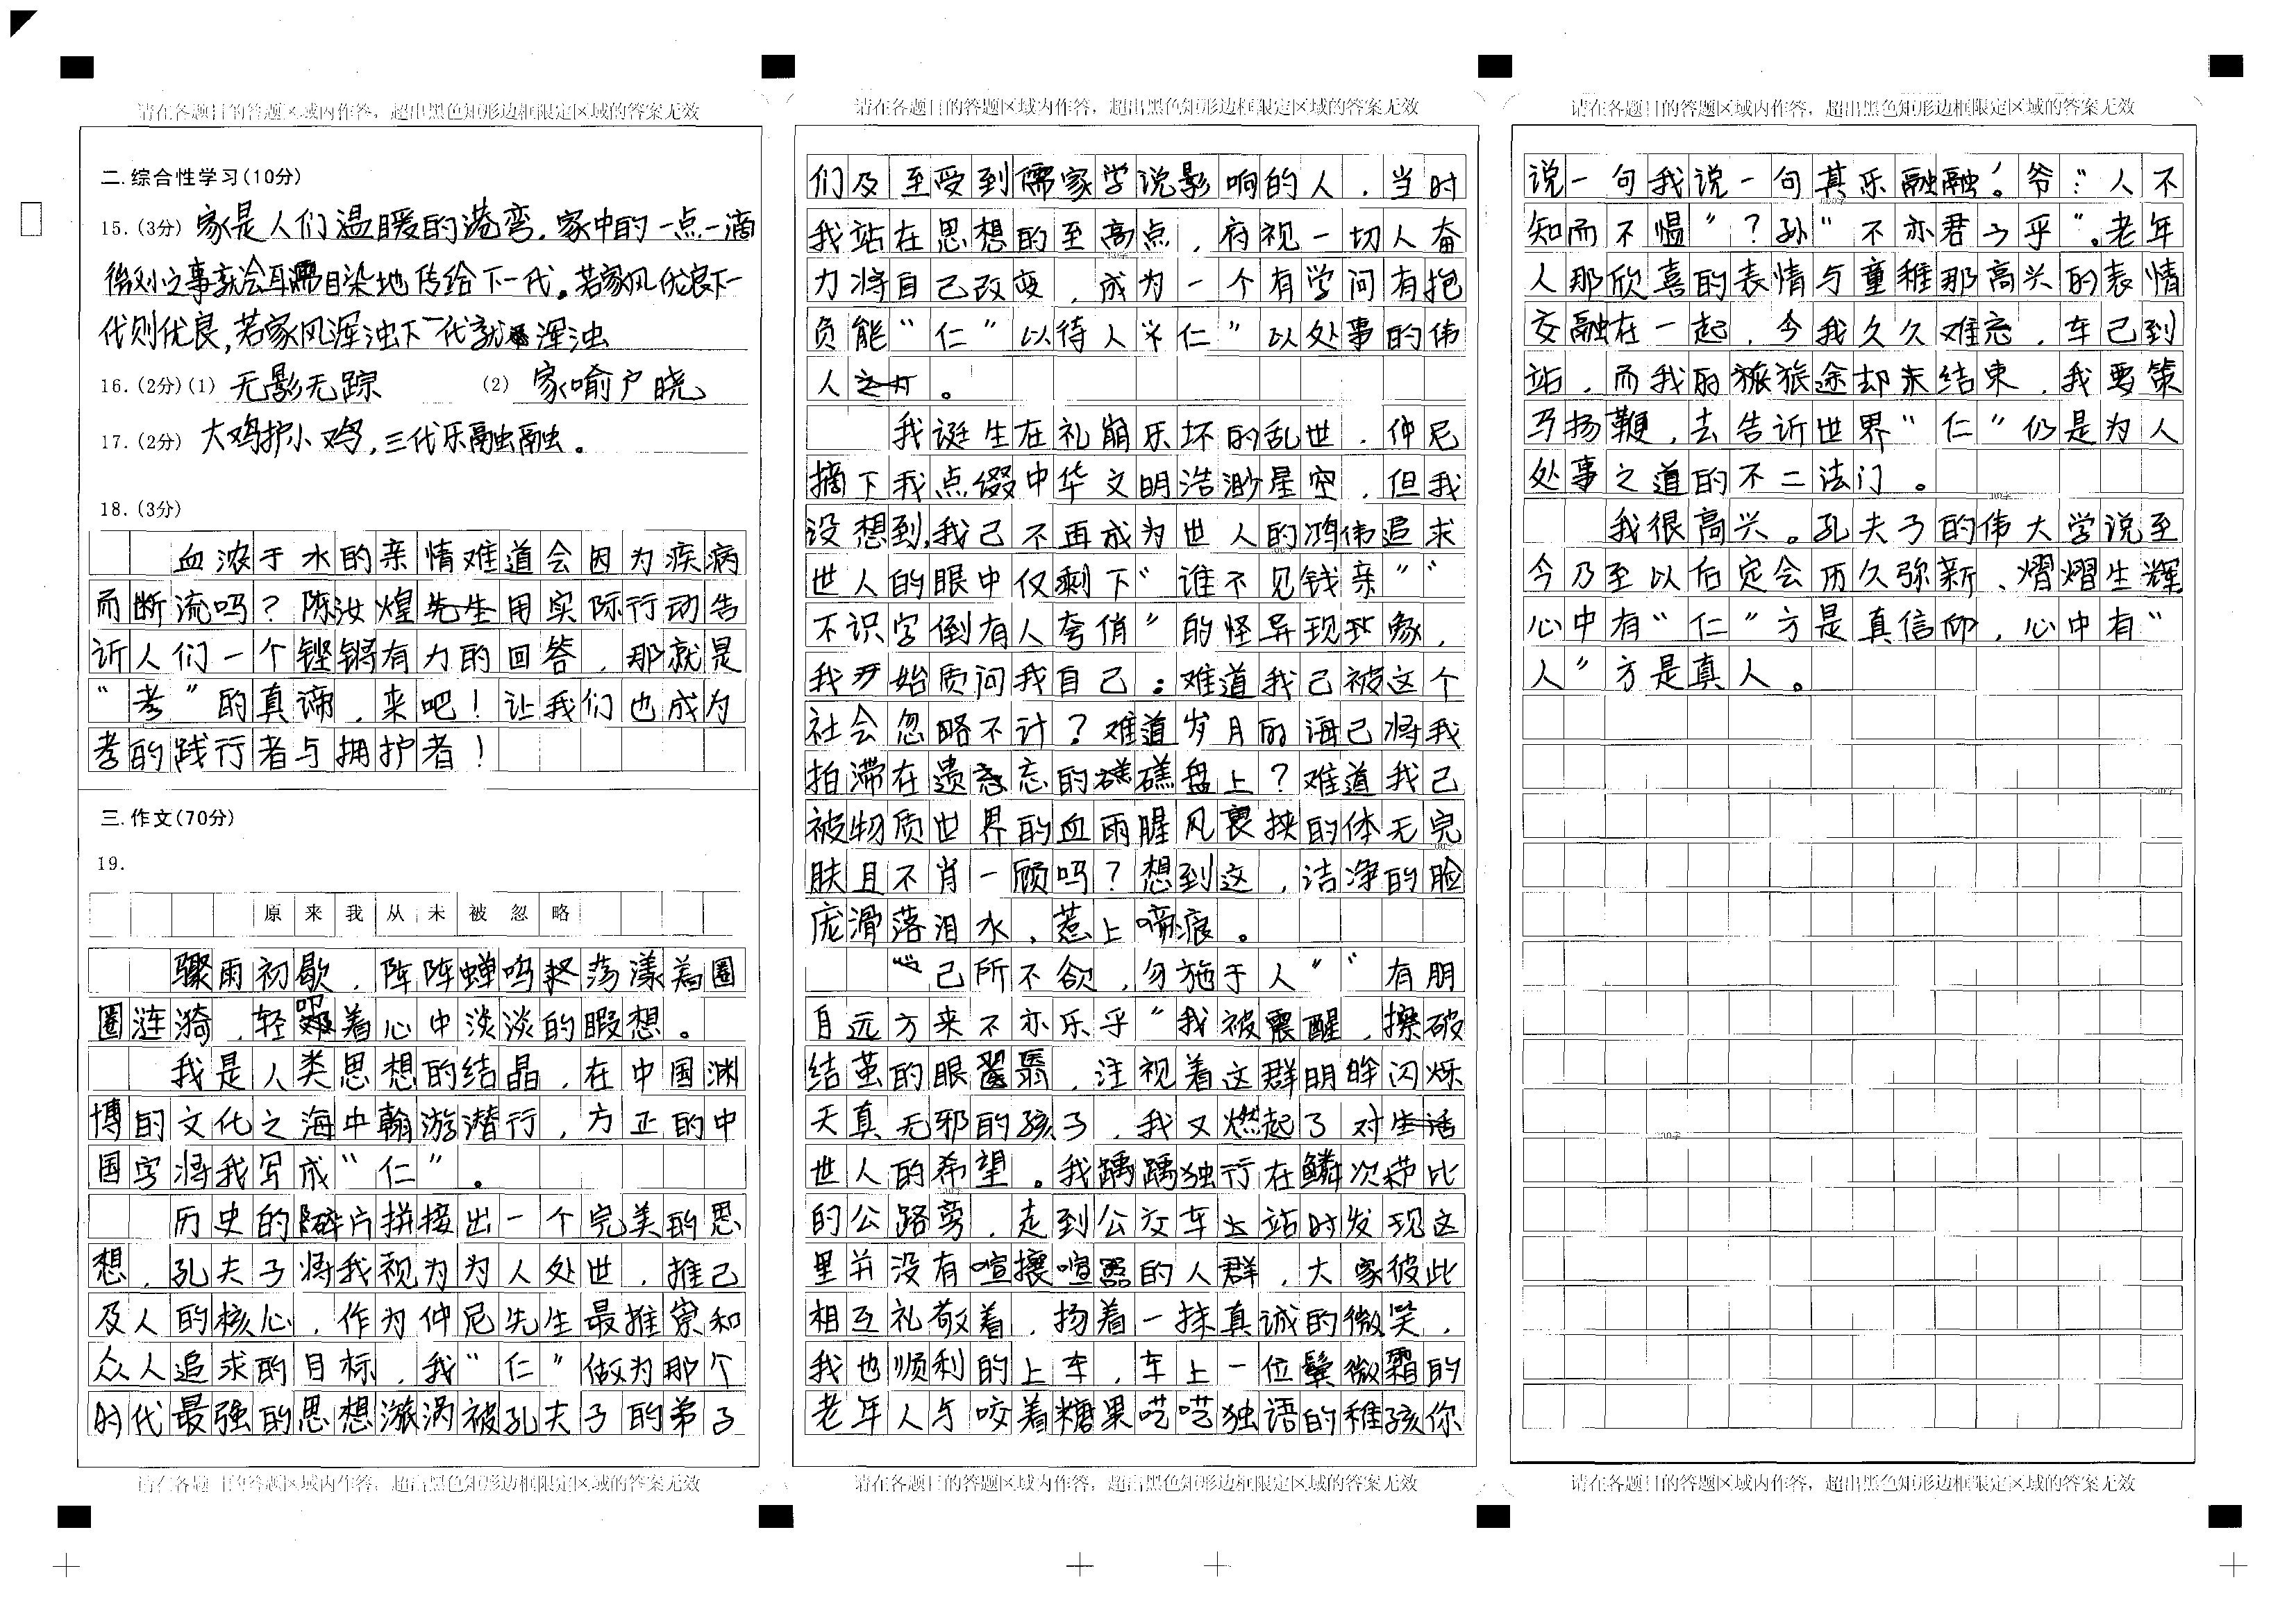 请在各题目的答题区域内作答，超出黑色矩形边框限定区域的答案无效
二.综合性学习(10分)
15.(3分) 家是人们温暖的港弯.家中的一点一滴
微刻之事就会耳濡目染地传给下一代。若家风优良下一
代则优良,若家风浑浊下一代就浑浊
16.(2分)(1) 无影无踪 (2) 家喻户晓
17.(2分) 大鸡护小鸡,三代乐融融。
18.(3分)
血浓于水的亲情难道会因为疾病
而断流吗？陈汝煌先生用实际行动告
诉人们一个铿锵有力的回答，那就是
“孝”的真谛，来吧！让我们也成为
孝的践行者与拥护者！
三.作文(70分)
19.
原来我从未被忽略
骤雨初歇，阵阵蝉鸣荡漾着圈
圈涟漪，轻叩着心中淡淡的暇想。
我是人类思想的结晶，在中国渊
博的文化之海中翱游潜行，方正的中
国字将我写成“仁”。
历史的碎片拼接出一个完美的思
想，孔夫子将我视为为人处世，推己
及人的核心，作为仲尼先生最推崇和
众人追求的目标，我“仁”做为那个
时代最强的思想漩涡被孔夫子的弟子
请在各题目的答题区域内作答，超出黑色矩形边框限定区域的答案无效
请在各题目的答题区域内作答，超出黑色矩形边框限定区域的答案无效
们及至受到儒家学说影响的人，当时
我站在思想的至高点，府视一切人奋
力将自己改变，成为一个有学问有抱
负能“仁”以待人“仁”以处事的伟
人。
我诞生在礼崩乐坏的乱世，仲尼
摘下我点缀中华文明浩渺星空，但我
没想到,我已不再成为世人的鸿伟追求
世人的眼中仅剩下“谁不见钱亲”“
不识字倒有人夸俏”的怪异现象，
我开始质问我自己：难道我已被这个
社会忽略不计？难道岁月的海已将我
拍滞在遗忘的礁盘上？难道我已
被物质世界的血雨腥风裹挟的体无完
肤且不肖一顾吗？想到这，洁净的脸
庞滑落泪水，惹上啼痕。
“己所不欲，勿施于人”“有朋
自远方来不亦乐乎”我被震醒，擦破
结茧的眼翳，注视着这群明眸闪烁
天真无邪的孩子，我又燃起了对
世人的希望。我踽踽独行在鳞次栉比
的公路旁，走到公交车站时发现这
里并没有喧攘喧嚣的人群，大家彼此
相互礼敬着，扬着一抹真诚的微笑，
我也顺利的上车，车上一位鬓微霜的
老年人与咬着糖果呓呓独语的稚孩你
请在各题目的答题区域内作答，超出黑色矩形边框限定区域的答案无效
请在各题目的答题区域内作答，超出黑色矩形边框限定区域的答案无效
说一句我说一句其乐融融。爷：“人不
知而不愠”？孙“不亦君子乎”。老年
人那欣喜的表情与童稚那高兴的表情
交融在一起，令我久久难忘，车已到
站，而我的旅途却未结束，我要策
马扬鞭，去告诉世界“仁”仍是为人
处事之道的不二法门。
我很高兴。孔夫子的伟大学说至
今乃至以后定会历久弥新、熠熠生辉
心中有“仁”方是真信仰，心中有“
人”方是真人。
请在各题目的答题区域内作答，超出黑色矩形边框限定区域的答案无效